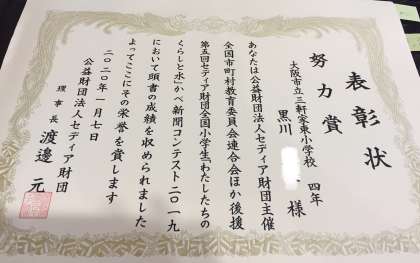 表彰状
努力賞
大阪市立三軒家東小学校 四年
黒川 様
あなたは公益財団法人セディア財団主催
全国市町村教育委員会連合会ほか後援
第五回セディア財団全国小学生「わたしたちの
くらしと水」かべ新聞コンテスト二〇一九
において頭書の成績を収められました
よってここにその栄誉を賞します
二〇二〇年一月七日
公益財団法人セディア財団
理事長 渡邉 元